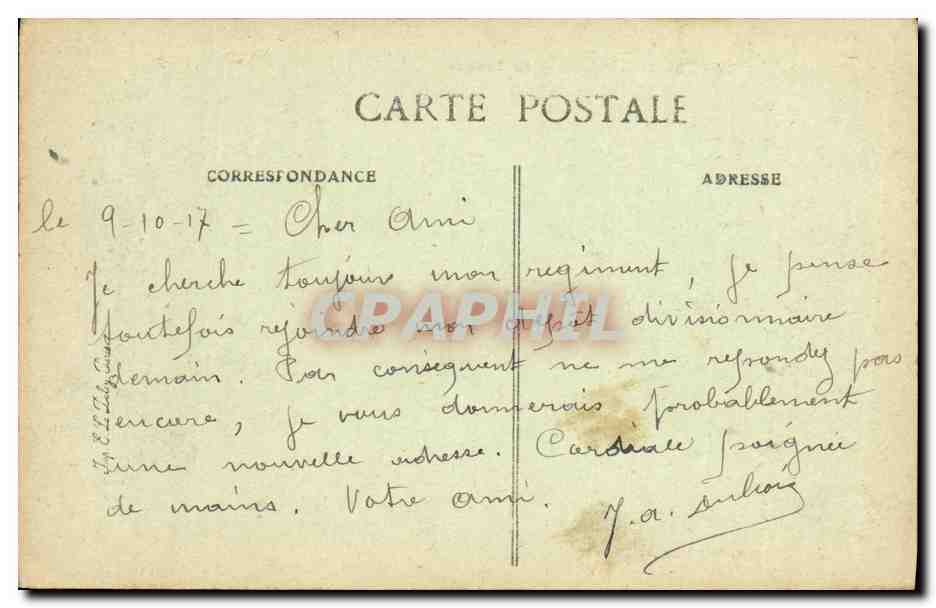 CARTE POSTALE
CORRESPONDANCE
ADRESSE
le 9-10-17 = Cher Ami
Je cherche toujours mon regiment, je pense
toutefois rejoindre mon depôt divisionnaire
demain. Par conséquent ne me repondez pas
encore, je vous donnerais probablement
une nouvelle adresse. Cordiale poignée
de mains. Votre ami.
J. a. Dubois
CPAPHIL